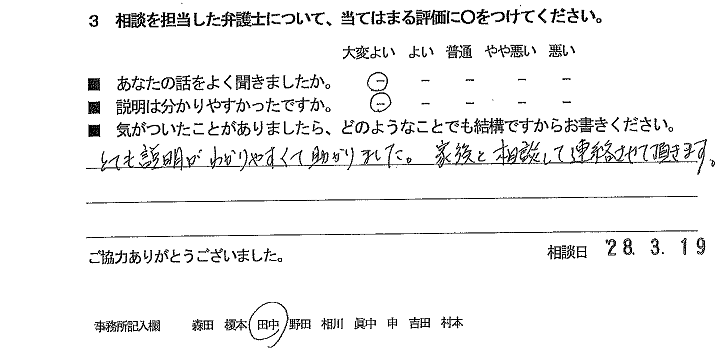 3 相談を担当した弁護士について、当てはまる評価に〇をつけてください。
大変よい よい 普通 やや悪い 悪い
■ あなたの話をよく聞きましたか。 － － － － －
■ 説明は分かりやすかったですか。 － － － － －
■ 気がついたことがありましたら、どのようなことでも結構ですからお書きください。
とても説明がわかりやすくて助かりました。家族と相談して連絡させて頂きます。
ご協力ありがとうございました。 相談日 '28.3.19
事務所記入欄 森田 榎本 田中 野田 相川 眞中 申 吉田 村本